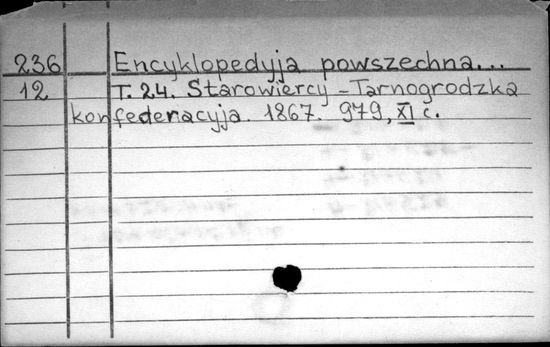 236 Encyklopedyja powszechna...
12 T. 24. Starowiercy - Tarnogrodzka
konfederacyja. 1867. 979, XI c.